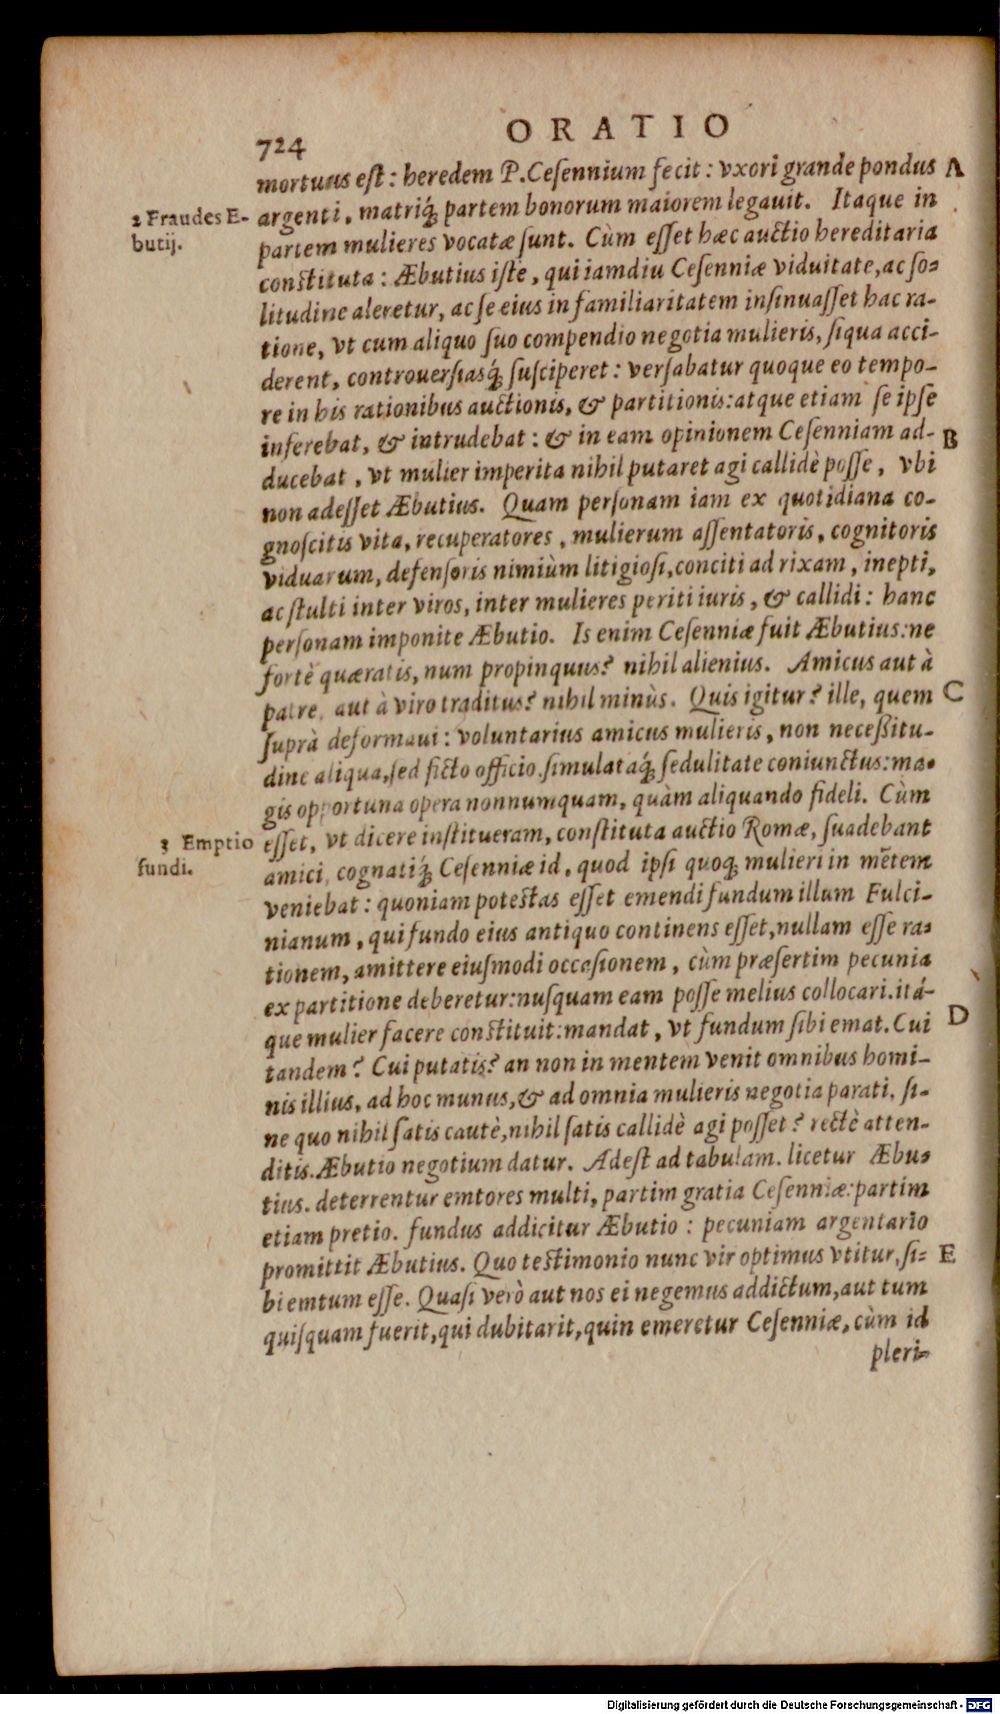 724
ORATIO
mortuus eſt: heredem P.Ceſennium fecit: vxori grande pondus A
2 Fraudes E-
butij.
argenti, matriq́; partem bonorum maiorem legauit. Itaque in
partem mulieres vocatæ ſunt. Cùm eſſet hæc auctio hereditaria
conſtituta: Æbutius iſte, qui iamdiu Ceſenniæ viduitate, ac ſo-
litudine aleretur, ac ſe eius in familiaritatem inſinuaſſet hac ra-
tione, vt cum aliquo ſuo compendio negotia mulieris, ſiqua acci-
derent, controuerſiasq́; ſuſciperet: verſabatur quoque eo tempo-
re in his rationibus auctionis, & partitionis: atque etiam ſe ipſe
inferebat, & intrudebat: & in eam opinionem Ceſenniam ad- B
ducebat, vt mulier imperita nihil putaret agi callidè poſſe, vbi
non adeſſet Æbutius. Quam perſonam iam ex quotidiana co-
gnoſcitis vita, recuperatores, mulierum aſſentatoris, cognitoris
viduarum, defenſoris nimiùm litigioſi, conciti ad rixam, inepti,
ac ſtulti inter viros, inter mulieres periti iuris, & callidi: hanc
perſonam imponite Æbutio. Is enim Ceſenniæ fuit Æbutius: ne
fortè quæratis, num propinquus? nihil alienius. Amicus aut à
patre, aut à viro traditus? nihil minùs. Quis igitur? ille, quem C
ſuprà deformaui: voluntarius amicus mulieris, non neceßitu-
dine aliqua, ſed ficto officio, ſimulataq́; ſedulitate coniunctus: ma-
gis opportuna opera nonnumquam, quàm aliquando fideli. Cùm
3 Emptio
fundi.
eſſet, vt dicere inſtitueram, conſtituta auctio Romæ, ſuadebant
amici, cognatiq́; Ceſenniæ id, quod ipſi quoq; mulieri in mẽtem
veniebat: quoniam poteſtas eſſet emendi fundum illum Fulci-
nianum, qui fundo eius antiquo continens eſſet, nullam eſſe ra-
tionem, amittere eiuſmodi occaſionem, cùm præſertim pecunia
ex partitione deberetur: nuſquam eam poſſe melius collocari. itá-
que mulier facere conſtituit: mandat, vt fundum ſibi emat. Cui D
tandem? Cui putatis? an non in mentem venit omnibus homi-
nis illius, ad hoc munus, & ad omnia mulieris negotia parati, ſi-
ne quo nihil ſatis cautè, nihil ſatis callidè agi poſſet? rectè atten-
ditis. Æbutio negotium datur. Adeſt ad tabulam. licetur Æbu-
tius. deterrentur emtores multi, partim gratia Ceſenniæ: partim
etiam pretio. fundus addicitur Æbutio: pecuniam argentario
promittit Æbutius. Quo teſtimonio nunc vir optimus vtitur, ſi- E
bi emtum eſſe. Quaſi verò aut nos ei negemus addictum, aut tum
quiſquam fuerit, qui dubitarit, quin emeretur Ceſenniæ, cùm id
pleri-
Digitalisierung gefördert durch die Deutsche Forschungsgemeinschaft - DFG